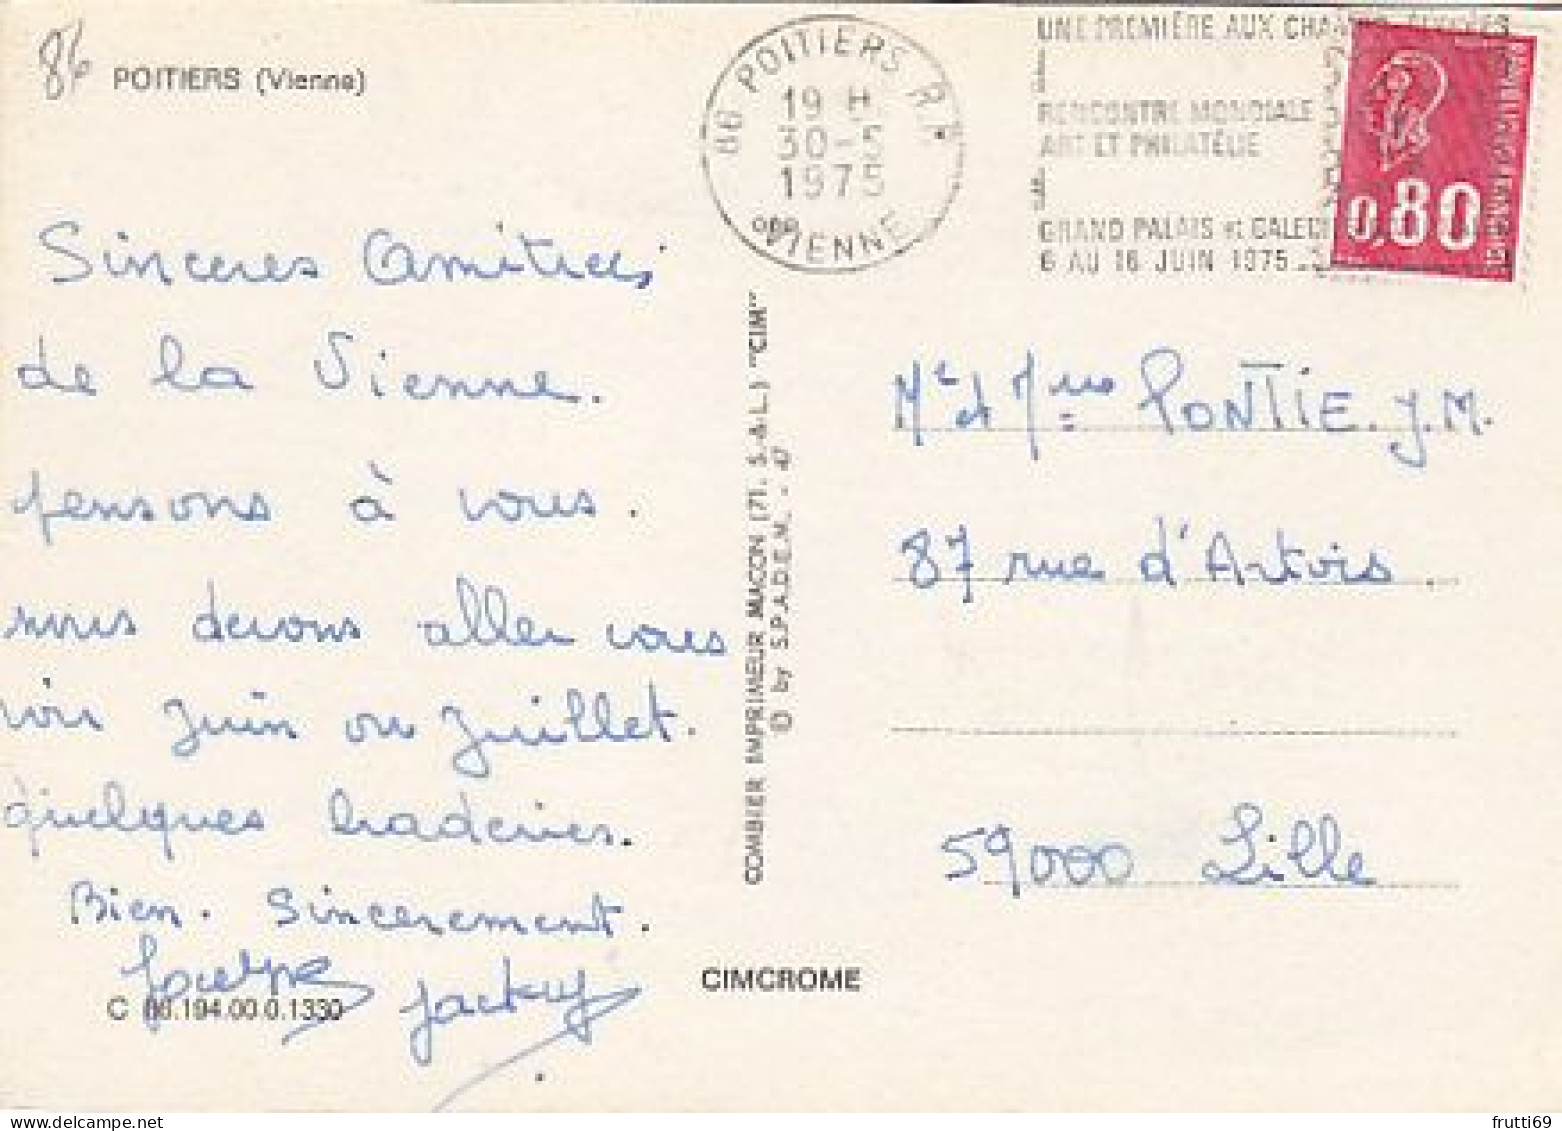 86
POITIERS (Vienne)
Sinceres Amitiés
de la Vienne.
pensons à vous.
nous devons aller vous
voir Juin ou Juillet.
quelques braderies.
Bien. Sincerement.
Jocelyne Jacky
C 86.194.00.0.1330
COMBIER IMPRIMEUR MACON (71. S.-&-L.) "CIM"
© by S.P.A.D.E.M. - 47
CIMCROME
86 POITIERS R.P.
19 H.
30-5
1975
VIENNE
UNE PREMIÈRE AUX CHAMPS ÉLYSÉES
RENCONTRE MONDIALE
ART ET PHILATÉLIE
GRAND PALAIS et GALERI
6 AU 16 JUIN 1975
0,80
Mr et Mme PONTIE. J.M.
87 rue d'Artois.
59000 Lille
frutti69